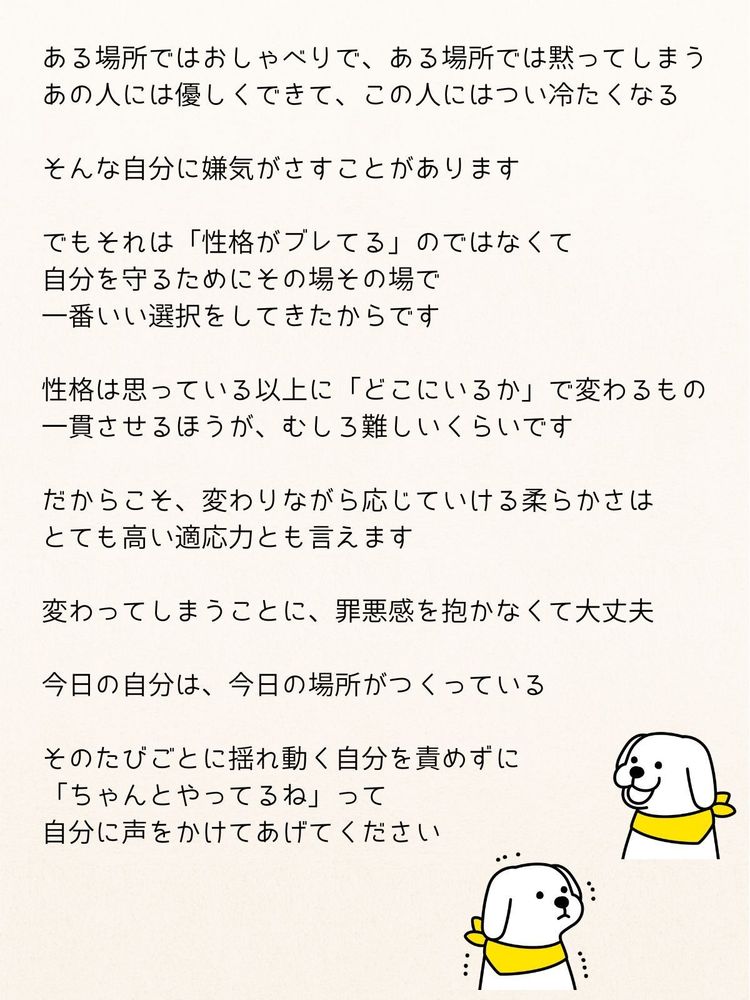 ある場所ではおしゃべりで、ある場所では黙ってしまう
あの人には優しくできて、この人にはつい冷たくなる
そんな自分に嫌気がさすことがあります
でもそれは「性格がブレてる」のではなくて
自分を守るためにその場その場で
一番いい選択をしてきたからです
性格は思っている以上に「どこにいるか」で変わるもの
一貫させるほうが、むしろ難しいくらいです
だからこそ、変わりながら応じていける柔らかさは
とても高い適応力とも言えます
変わってしまうことに、罪悪感を抱かなくて大丈夫
今日の自分は、今日の場所がつくっている
そのたびごとに揺れ動く自分を責めずに
「ちゃんとやってるね」って
自分に声をかけてあげてください